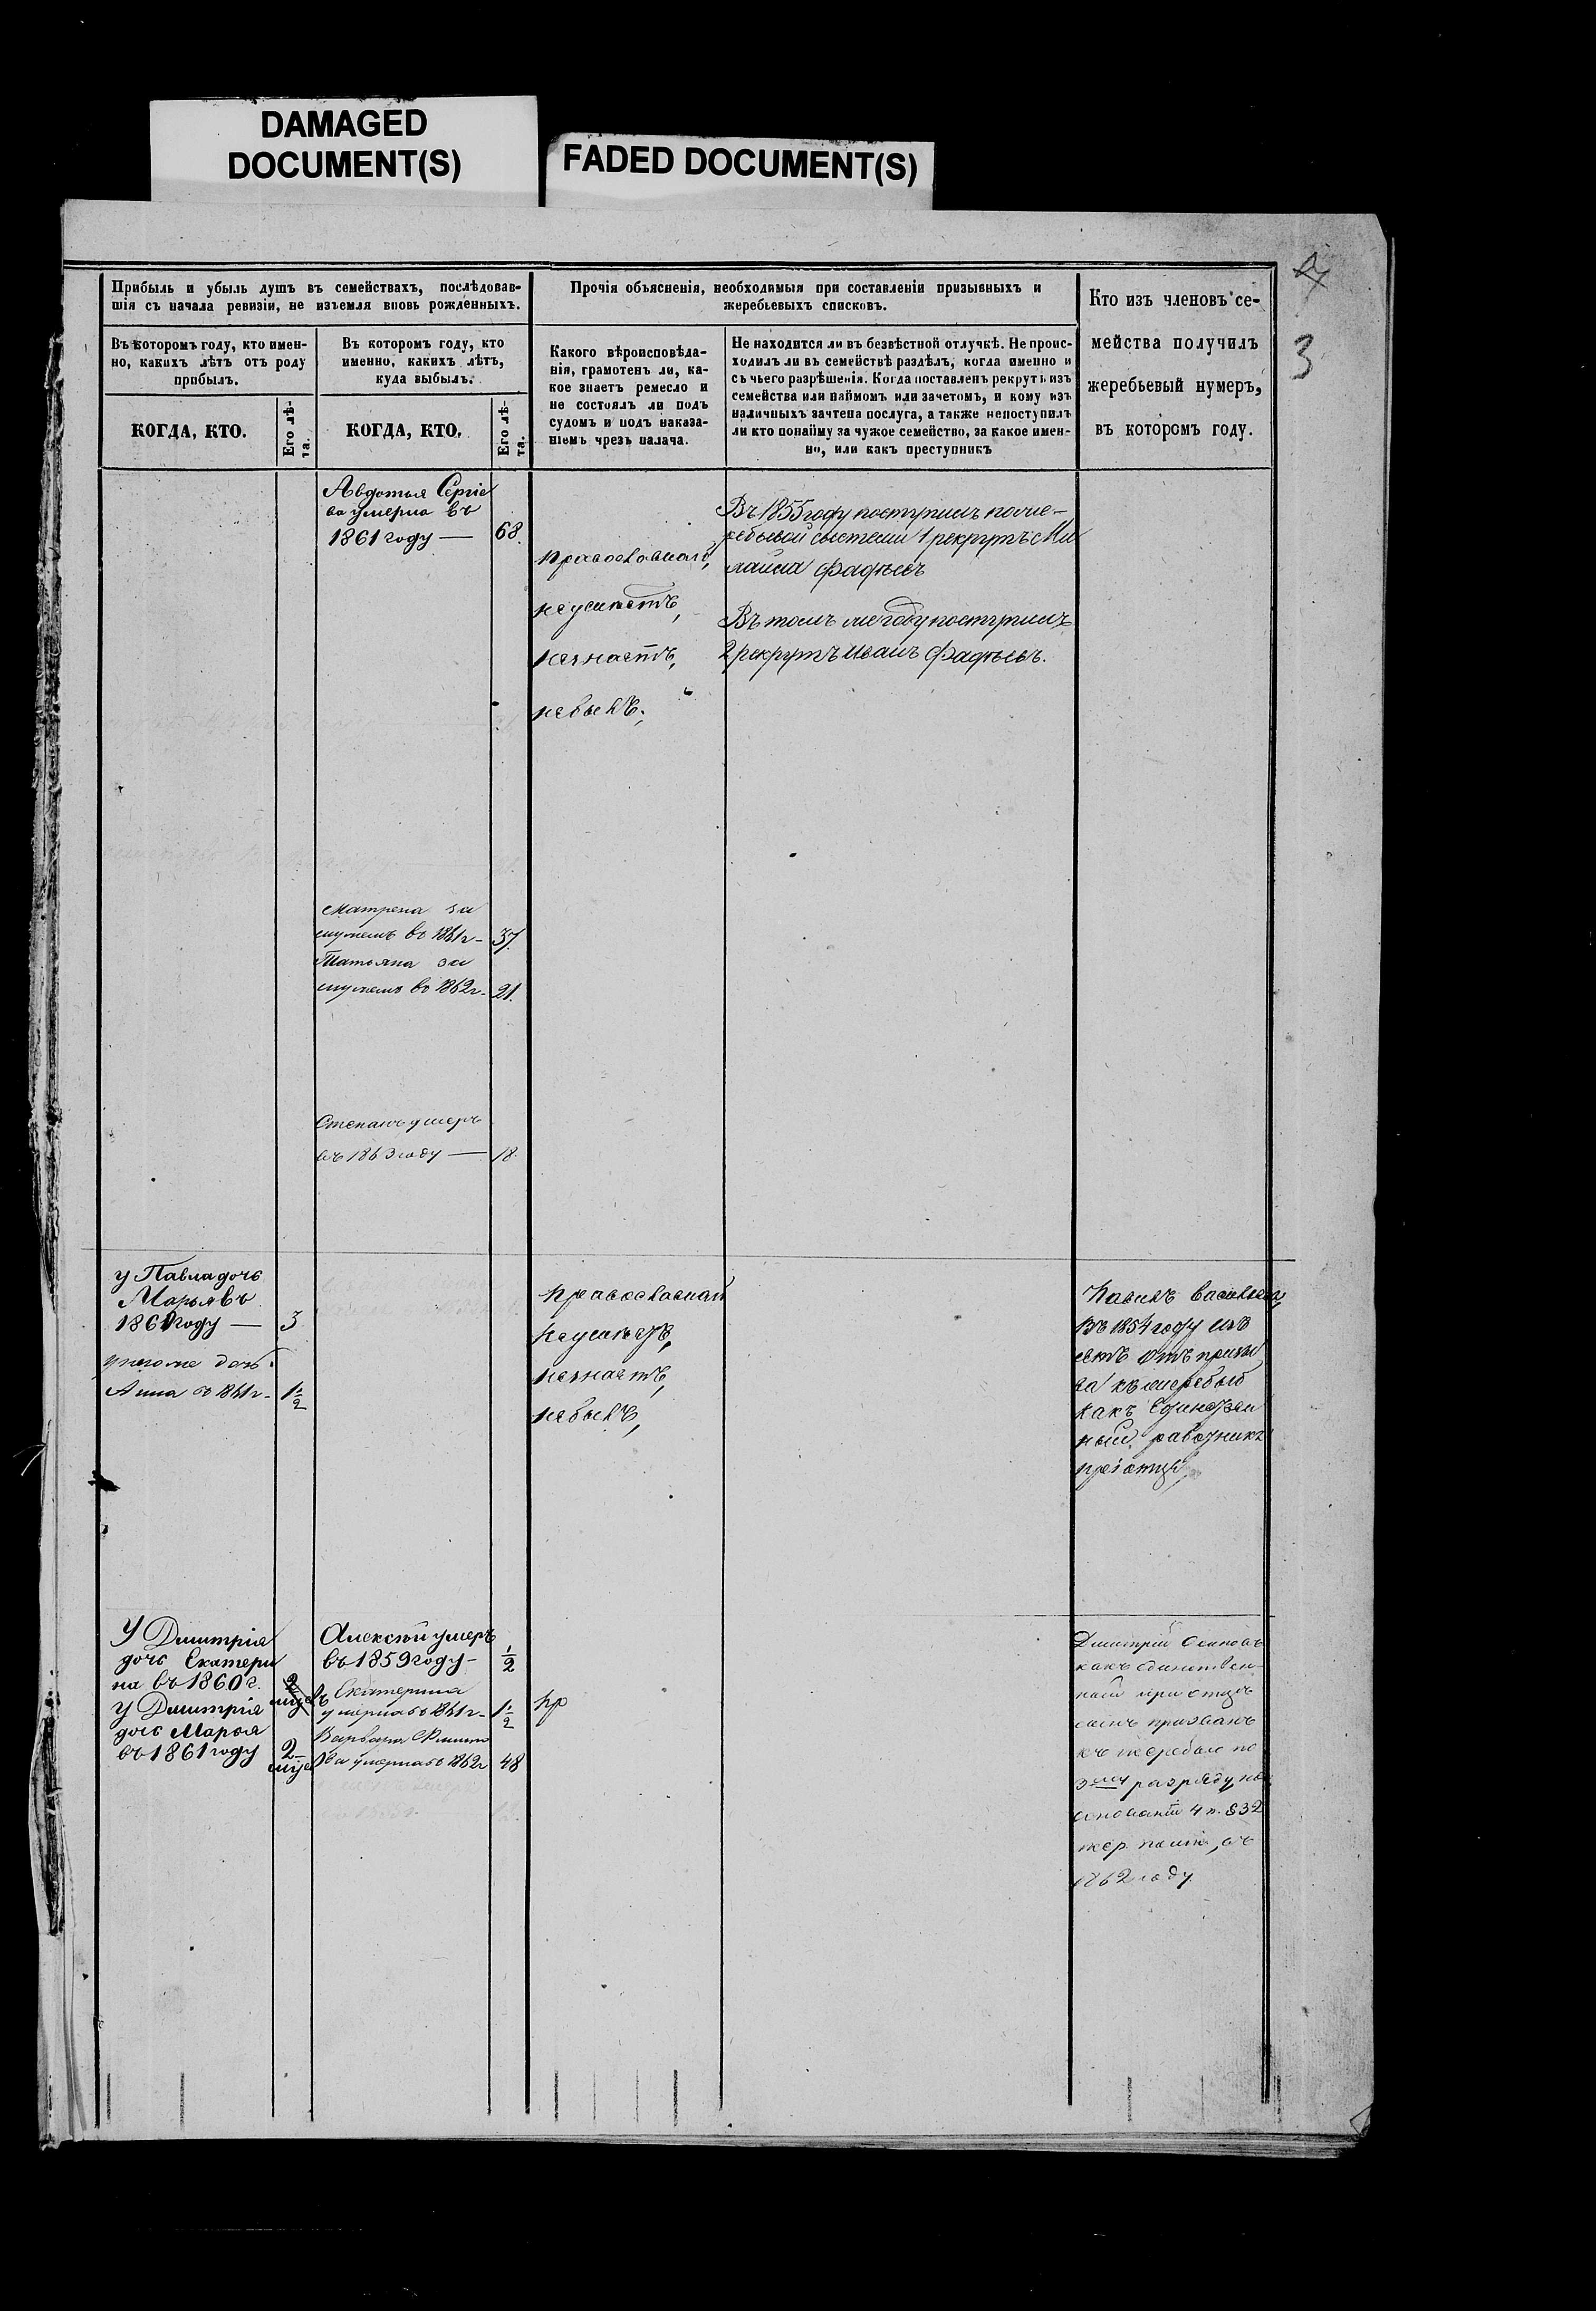 DAMAGED
DOCUMENT(S)
FADED DOCUMENT(S)
3
Прибыль и убыль душъ въ семействахъ, послѣдовав-
шія съ начала ревизіи, не изъемля вновь рожденныхъ.
Прочія объясненія, необходимыя при составленіи призывныхъ и
жеребьевыхъ списковъ.
Кто изъ членовъ се-
мейства получилъ
жеребьевый нумеръ,
въ которомъ году.
Въ которомъ году, кто имен-
но, какихъ лѣтъ отъ роду
прибылъ.
Въ которомъ году, кто
именно, какихъ лѣтъ,
куда выбылъ.
Какого вѣроисповѣда-
нія, грамотенъ ли, ка-
кое знаетъ ремесло и
не состоялъ ли подъ
судомъ и подъ наказа-
ніемъ чрезъ палача.
Не находится ли въ безвѣстной отлучкѣ. Не проис-
ходилъ ли въ семействѣ раздѣлъ, когда именно и
съ чьего разрѣшенія. Когда поставленъ рекрутъ изъ
семейства или наймомъ или зачетомъ, и кому изъ
наличныхъ зачтена послуга, а также непоступилъ
ли кто понайму за чужое семейство, за какое имен-
но, или какъ преступникъ
КОГДА, КТО.
Его лѣ-
та.
КОГДА, КТО.
Его лѣ-
та.
Авдотья Сергіе
ва умерла въ
1861 году — 68.
православной,
неумѣетъ,
незнаетъ,
небылъ,
Въ 1855 году поступилъ по же-
ребьевой системи 1 рекрутъ Ми
хайла Фадѣевъ
Въ томъ же году поступилъ
2 рекрутъ Иванъ Фадѣевъ.
Матрена за
мужемъ въ 1861 г - 37.
Татьяна за
мужемъ въ 1862 г - 21.
Степанъ умеръ
въ 1863 году — 18.
У Павла дочь
Марья въ
1860 году — 3
у него же дочь
Анна въ 1861 г - 1 1/2
православной
неумѣетъ,
незнаетъ,
небылъ,
Павелъ Васильевъ
Въ 1854 году изъ
ятъ отъ призы
ва къ жеребью
какъ единствен
ный работникъ
при отцѣ,
У Димитрія
дочь Екатери
на въ 1860 г. 2 мца
У Димитрія
дочь Марья
въ 1861 году 2 мца
Алексѣй умеръ
въ 1859 году - 1/2
Екатерина
умерла въ 1861 г - 1 1/2
Варвара
ва умерла въ 1862 г 48
пр
Димитрій Осиповъ
какъ единствен-
ный при отцѣ
сынъ призванъ
къ жеребью по
3му разряду на
основаніи 4 п. § 32
жер. полож., въ
1862 году.